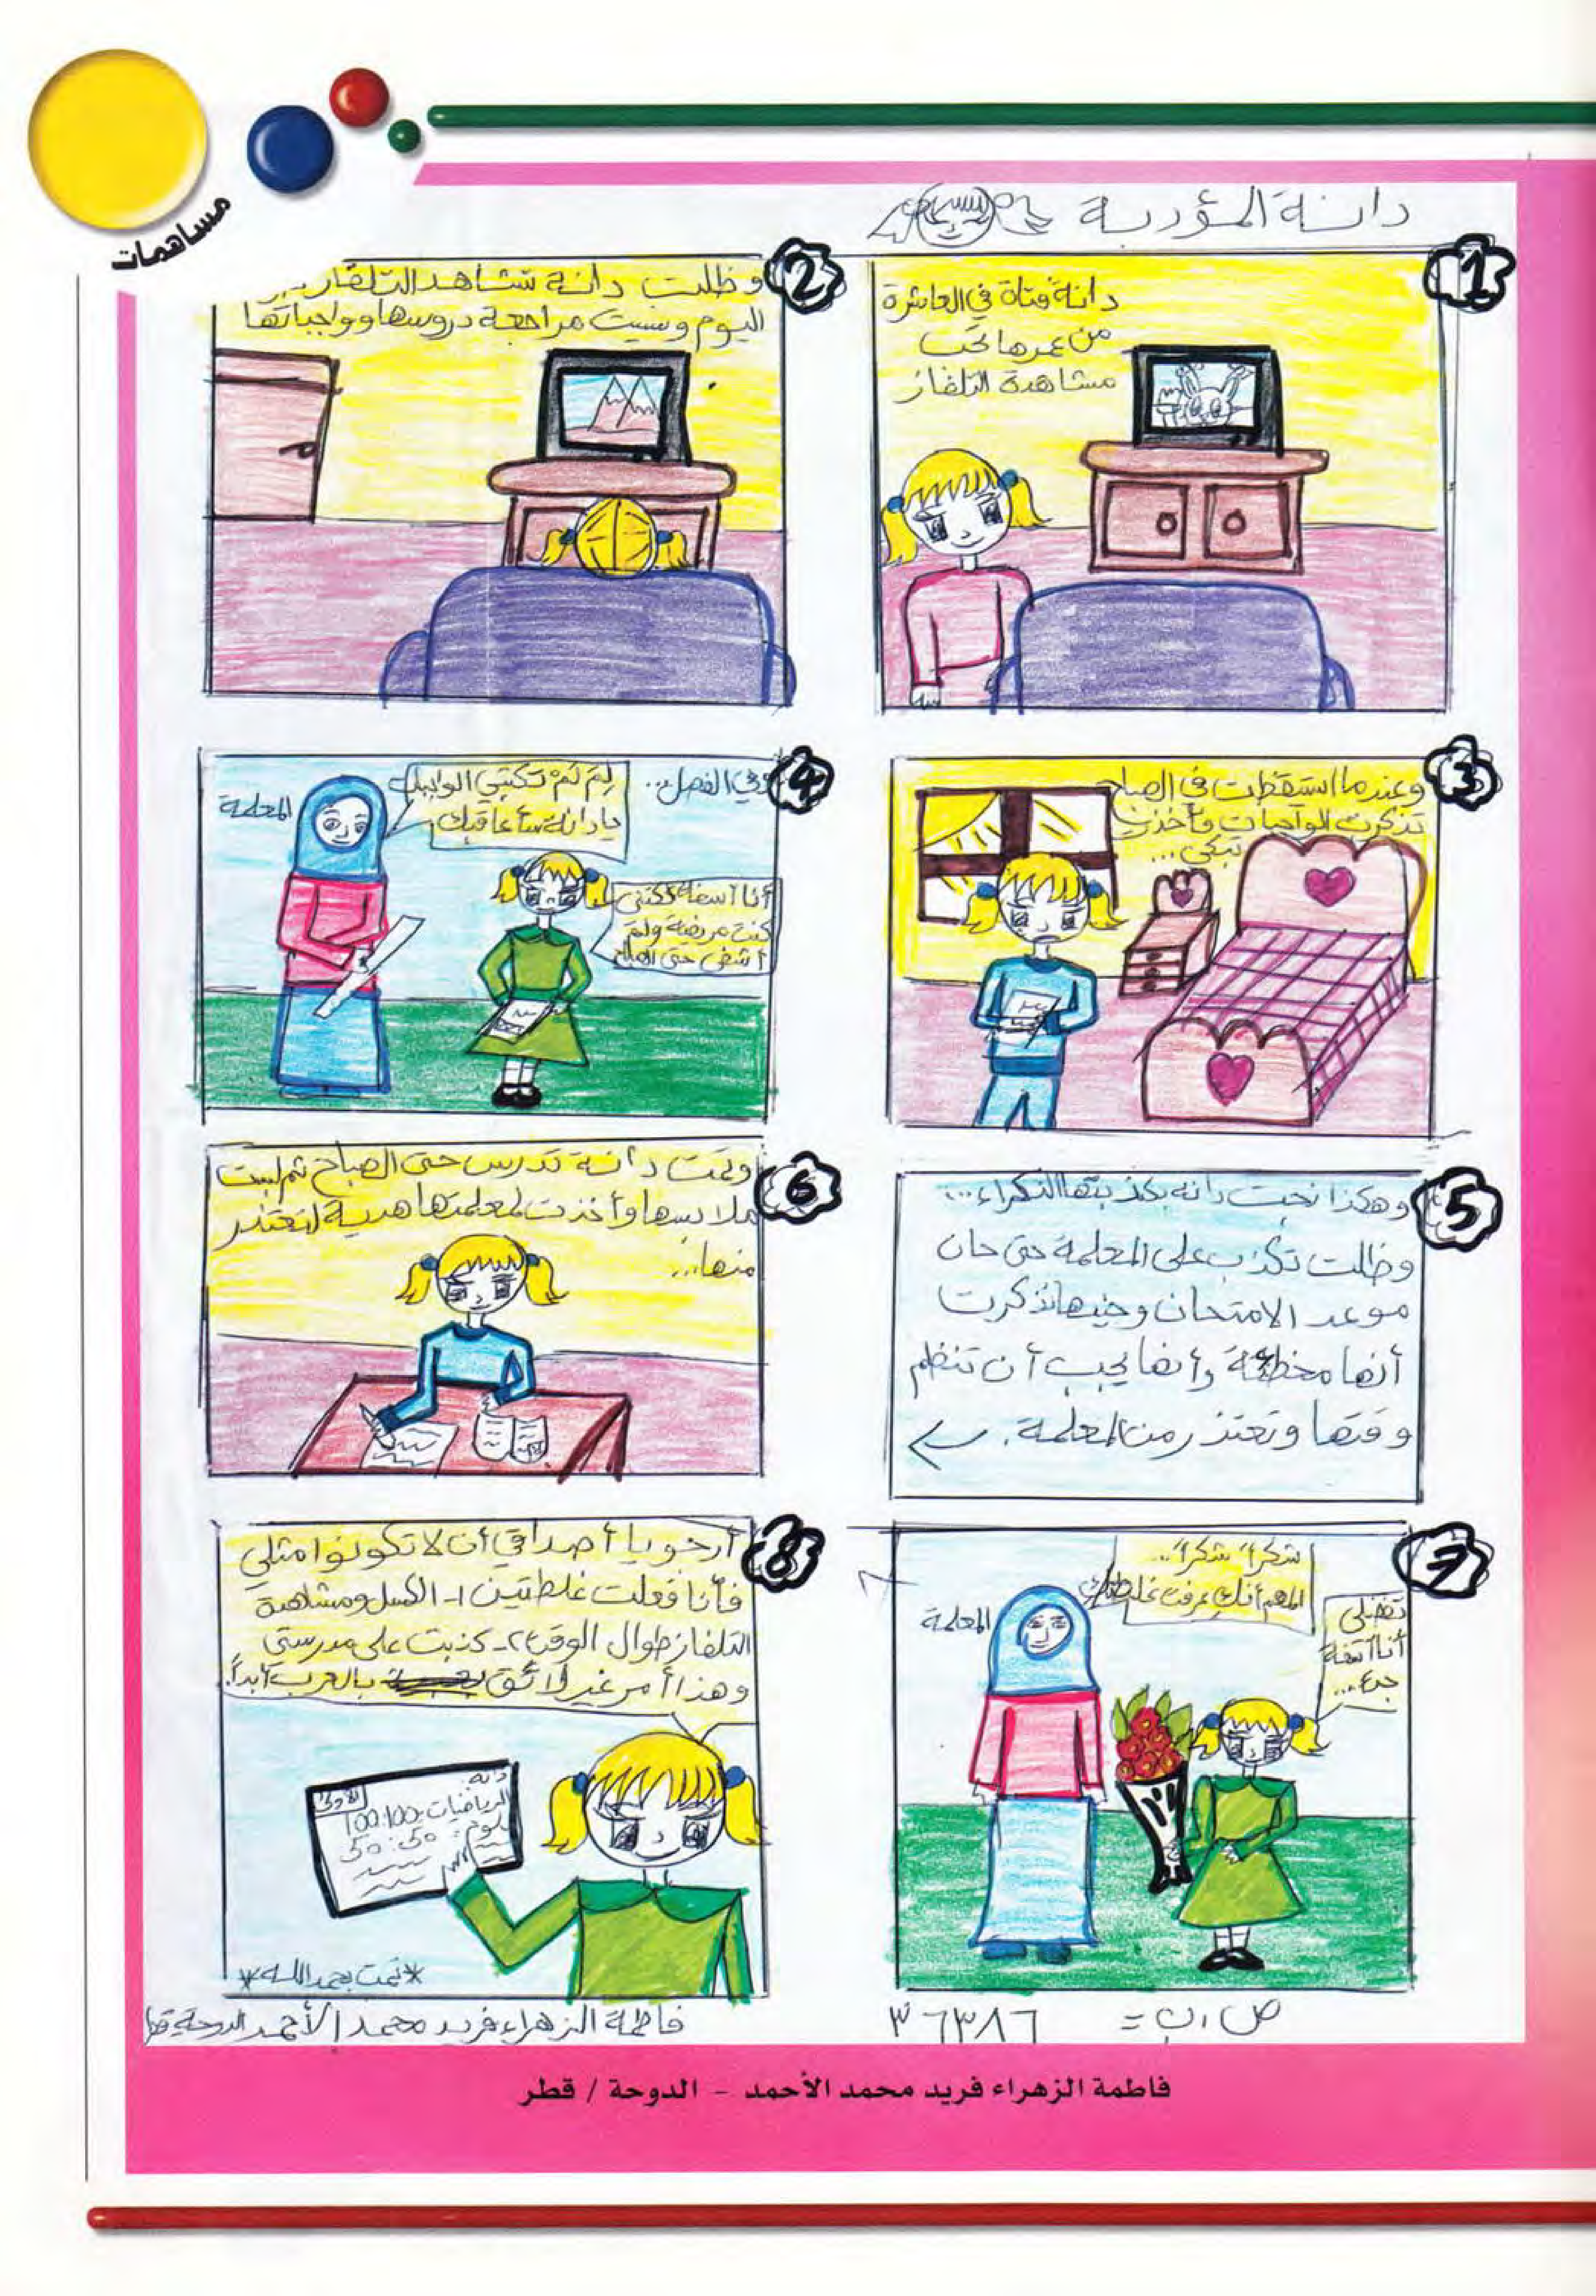 مساهمات
دانة المؤدبة
1
دانة فتاة في العاشرة
من عمرها تحب
مشاهدة التلفاز
2
وظلت دانة تشاهد التلفاز
اليوم ونسيت مراجعة دروسها وواجباتها
3
وعندما استيقظت في الصباح
تذكرت الواجبات وأخذت
تبكي...
4
وفي الفصل...
المعلمة
لِمَ لَمْ تكتبي الواجب
يا دانة سأعاقبك
أنا آسفة لكنني
كنت مريضة ولم
أشفى حتى الصباح
5
وهكذا نجت دانه بكذبتها النكراء...
وظلت تكذب على المعلمة حتى حان
موعد الامتحان وحينها تذكرت
أنها مخطئة وأنها يجب أن تنظم
وقتها وتعتذر من المعلمة.
6
دانة تدرس حتى الصباح ثم لبست
ملابسها وأخذت لمعلمتها هدية لتعتذر
منها...
7
شكراً شكراً...
المهم أنك عرفت غلطتك
المعلمة
تفضلي
أنا آسفة
جدع...
8
أرجو يا أصداقي أن لا تكونوا مثلي
فأنا فعلت غلطتين ١- الكسل ومشاهدة
التلفاز طوال الوقت ٢- كذبت على مدرستي
وهذا أمر غير لائق بالعرب أبداً.
دانه:
الأولى
الرياضيات: 100:100
علوم: 50:50
*تمت بحمد الله*
ص.ب = ٣٦٣٨٦
فاطمة الزهراء فريد محمد الأحمد الدوحة قطر
فاطمة الزهراء فريد محمد الأحمد - الدوحة / قطر